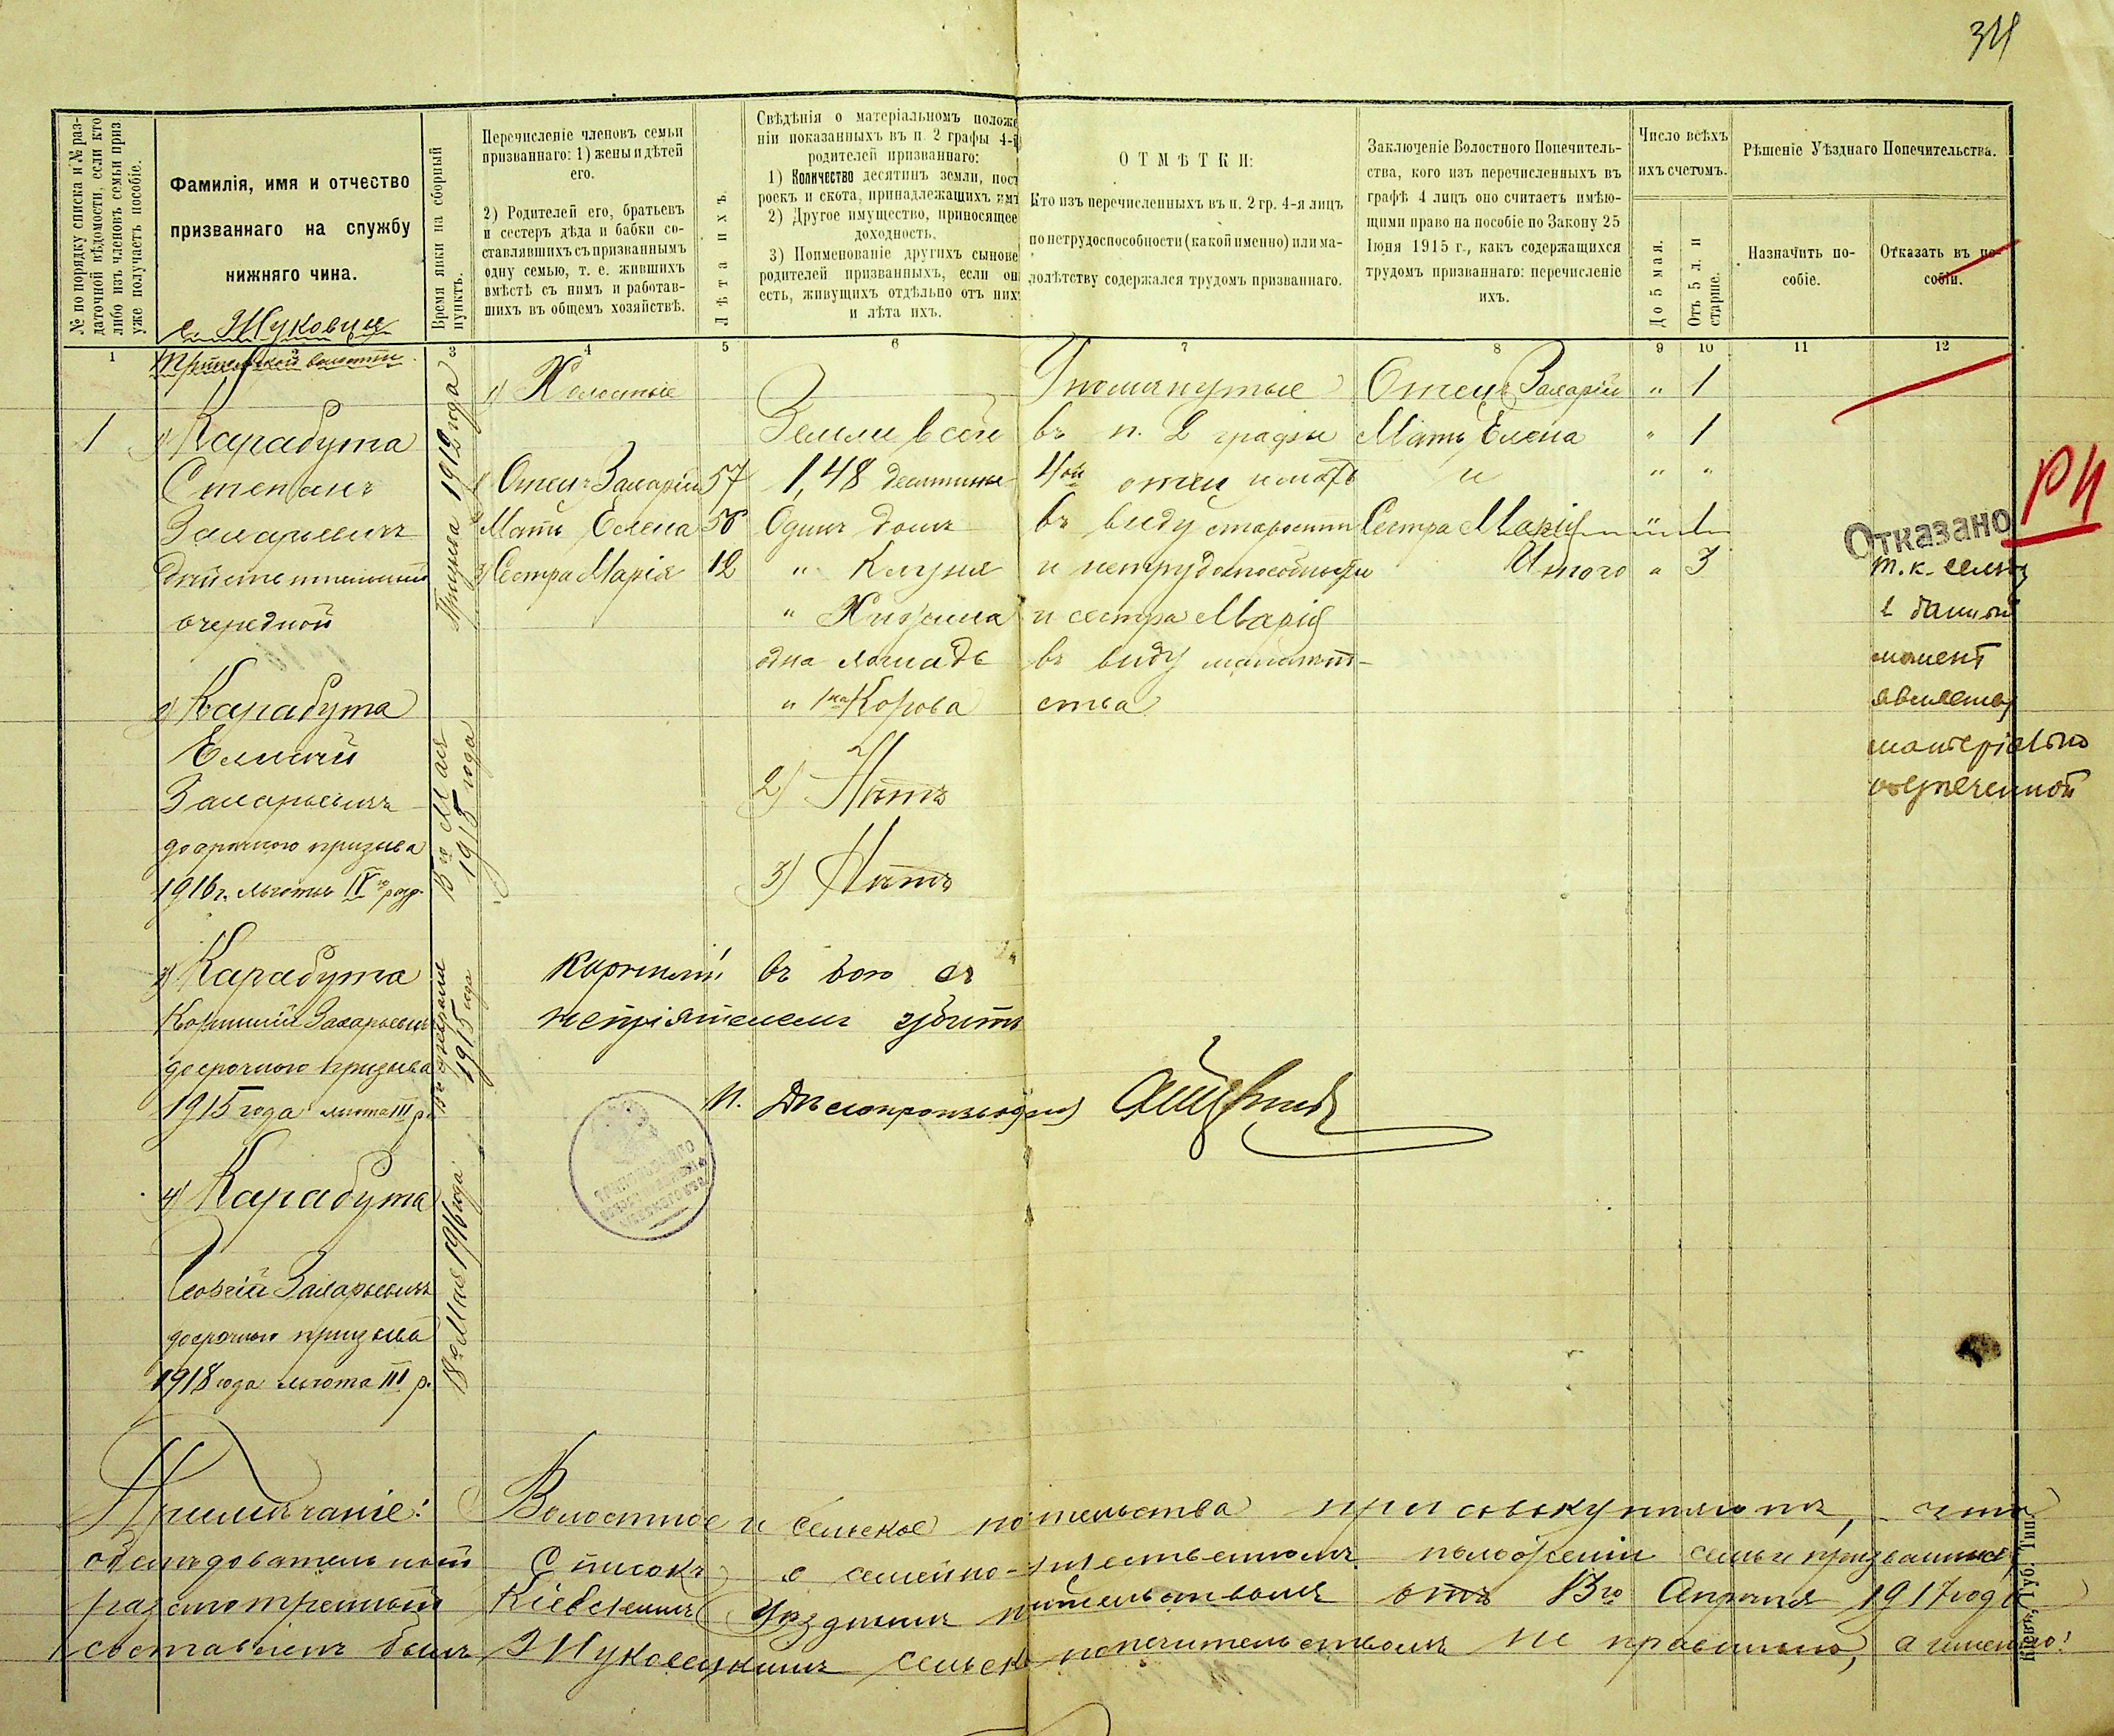 34
№ по порядку списка и № раз-
даточной вѣдомости, если кто
либо изъ членовъ семьи приз
уже получаетъ пособіе.
Фамилія, имя и отчество
призваннаго на службу
нижняго чина.
с. Жуковцы
волости
Время явки на сборный
пунктъ.
Перечисленіе членовъ семьи
призваннаго: 1) жены и дѣтей
его.
2) Родителей его, братьевъ
и сестеръ дѣда и бабки со-
ставлявшихъ съ призваннымъ
одну семью, т. е. жившихъ
вмѣстѣ съ нимъ и работав-
шихъ въ общемъ хозяйствѣ.
Лѣта ихъ.
Свѣдѣнія о матеріальномъ положе
ніи показанныхъ въ п. 2 графы 4-й
родителей призваннаго:
1) Количество десятинъ земли, пост
роекъ и скота, принадлежащихъ имъ
2) Другое имущество, приносящее
доходность.
3) Поименованіе другихъ сынове
родителей призванныхъ, если он
есть, живущихъ отдѣльно отъ них
и лѣта ихъ.
ОТМѢТКИ:
Кто изъ перечисленныхъ въ п. 2 гр. 4-я лицъ
по нетрудоспособности (какой именно) или ма-
лолѣтству содержался трудомъ призваннаго.
Заключеніе Волостного Попечитель-
ства, кого изъ перечисленныхъ въ
графѣ 4 лицъ оно считаетъ имѣю-
щими право на пособіе по Закону 25
Іюня 1915 г., какъ содержащихся
трудомъ призваннаго: перечисленіе
ихъ.
Число всѣхъ
ихъ счетомъ.
До 5 мая.
Отъ 5 л. и
старше.
Рѣшеніе Уѣзднаго Попечительства.
Назначить по-
собіе.
Отказать въ по-
собіи.
1 2 3 4 5 6 7 8 9 10 11 12
1
1) Карабута
Степанъ
Захарьевичъ
действительный
очередной
Призыва 1912 года
1) Холостые
1) Отецъ Захарій 57
2) Мать Елена 56
3) Сестра Марія 12
Земли всей
1,48 десятины
Одинъ домъ
" Клуня
" Хижина
одна лошадь
" 1на Корова
2) Нѣтъ
3) Нѣтъ
Упомянутые
въ п. 2 графы
4ой отец и мать
въ виду старости
и нетрудоспособности
и сестра Марія
въ виду малолѣт-
ства
Отецъ Захарій " 1
Мать Елена " 1
и " "
Сестра Марія " 1
Итого " 3
РЧ
Отказано
т. к. семья
в данный
момент
является
матеріально
обезпеченной
2) Карабута
Елисей
Захарьевичъ
досрочного призыва
1916 г. льготы IV го разр.
15го Мая
1915 года
3) Карабута
Корнилій Захарьевичъ
досрочного призыва
1915 года льгота III р.
1915 года
Корнилій въ бою съ
непріятелемъ убитъ
И. Дѣлопроизводит
4) Карабута
Георгій Захарьевичъ
досрочного призыва
1918 года льгота III р.
18го Мая 1916 года
Примѣчаніе: Волостное и сельское попечительства присовокупляютъ, что
обслѣдовательный списокъ о семейно-имущественномъ положеніи семьи призванныхъ,
разсмотренный Кіевскимъ Уѣзднымъ попечительствомъ отъ 13го Апрѣля 1917 года
составленъ былъ Жуковецкимъ сельск попечительствомъ не правильно, а именно:
Кіевъ, Губ. Тип.